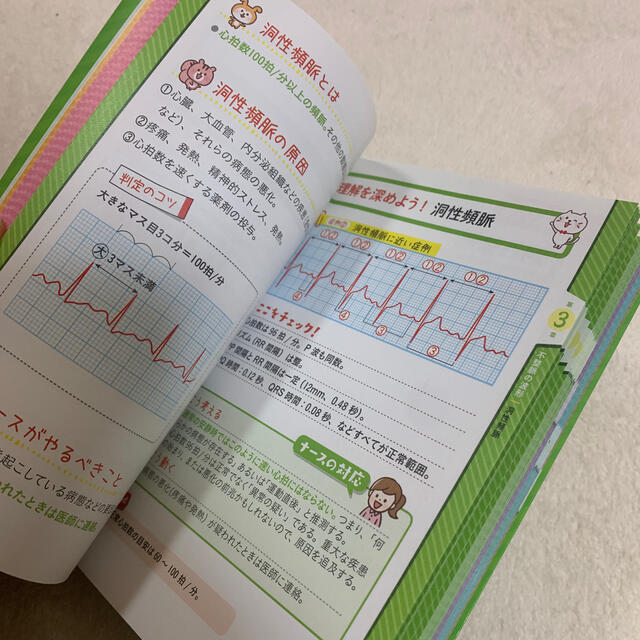 洞性頻脈とは
●心拍数100拍/分以上の頻脈。その他の
洞性頻脈の原因
①心臓、大血管、内分泌組織などの
など)、それらの病態の悪化。
②疼痛、発熱、精神的ストレス、
③心拍数を速くする薬剤の投与。
判定のコツ
大きなマス目3コ分=100拍/分
大3マス未満
ースがやるべきこと
起こしている病態などの
われたときは医師に連絡
理解を深めよう! 洞性頻脈
洞性頻脈に近い症例
①② ①② ①② ①② ①②
④ ④ ③ ③
ここをチェック!
心拍数は96拍/分。P波も同数。
リズム(RR間隔)は整。
PP間隔とRR間隔は一定(12mm、0.48秒)。
PQ時間:0.12秒、QRS時間:0.08秒、などすべてが正常範囲。
ナースの対応
考える
の安静時ではこのように速い心拍にはならない。つまり、「何
の病態が存在する、あるいは「運動直後」と推測する。
心拍数約100拍/分は正常でなく「異常の疑い」である。重大な疾患
まり、または悪化の前兆かもしれないので、原因を追及する。
動く
の悪化(疼痛や発熱)が疑われたときは医師に連絡。
心拍数の目安は60〜100拍/分。
第
3
章
不整脈の波形
洞性頻脈